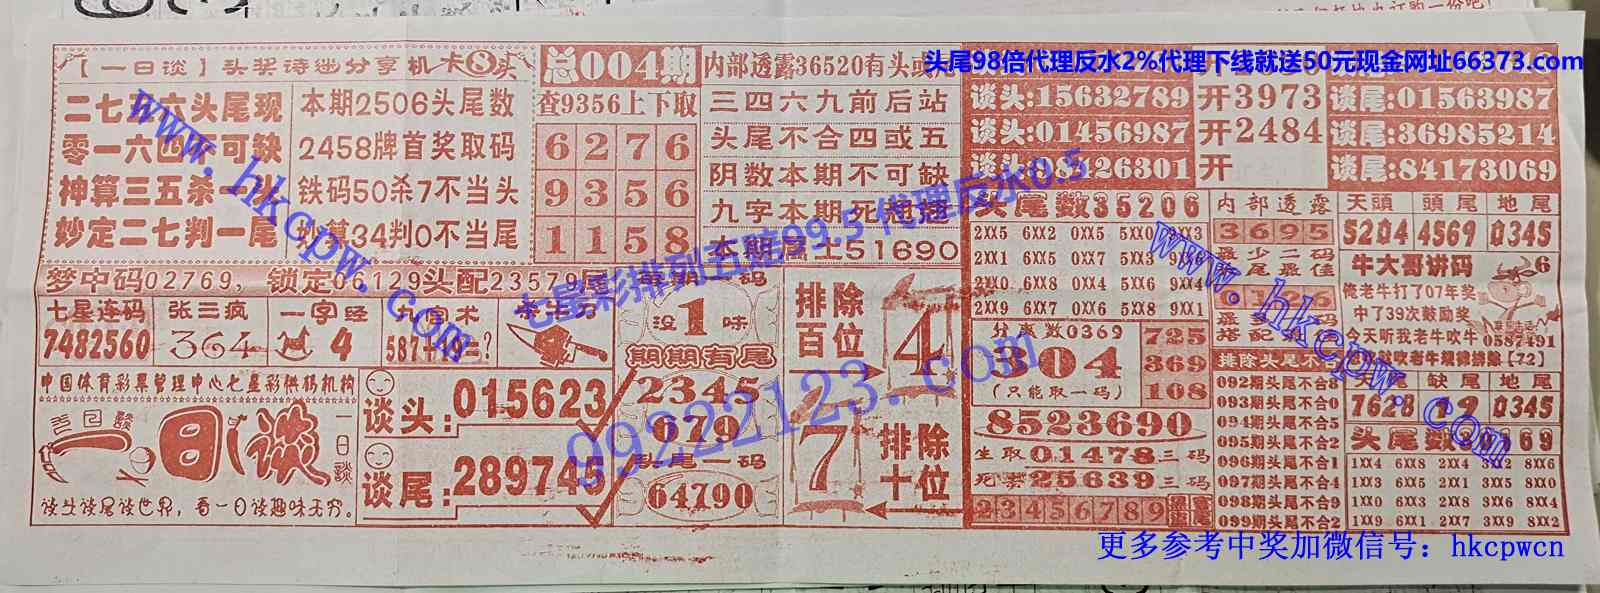 头尾98倍代理反水2%代理下线就送50元现金网址66373.com
【一日谈】头奖诗谜分享机卡⑧头
二七 六头尾现
零一六四 可缺
神算三五杀一
妙定二七判一尾
本期2506头尾数
2458牌首奖取码
铁码50杀7不当头
妙算34判0不当尾
总004期
查9356上下取
6 2 7 6
9 3 5 6
1 1 5 8
内部透露36520有头或
三四六九前后站
头尾不合四或五
阴数本期不可缺
九字本期死
本期属土51690
谈头:15632789 开3973 谈尾:01563987
谈头:01456987 开2484 谈尾:36985214
谈头:98126301 开 谈尾:84173069
梦中码02769,锁定06129头配23579尾
七星连码
7482560
张三疯
364
一字经
4
九宫术
每期一码
没1味
期期有尾
2345
679
头尾一码
64790
排除百位
4
7
排除十位
中国体育彩票管理中心七星彩供码机构
一日谈
谈头谈尾谈世界,看一日谈趣味无穷。
谈头:015623
谈尾:289745
头尾数35206
2XX5 6XX2 0XX5 5XX0 9XX3
2XX1 6XX5 0XX7 5XX3 9XX6
2XX0 6XX8 0XX4 5XX6 9XX4
2XX9 6XX7 0XX2 5XX8 9XX1
分离数0369
304
(只能取一码)
725
369
108
8523690
生取01478三码
死禁25639三码
2 3 4 5 6 7 8 9
内部透露
3695
最少二码
头尾最佳
0126
排除头尾不合
092期头尾不合8
093期头尾不合0
094期头尾不合5
095期头尾不合2
096期头尾不合1
097期头尾不合4
098期头尾不合9
099期头尾不合2
天頭 頭尾 地尾
5204 4569 0345
牛大哥讲码
6
俺老牛打了07年奖
中了39次鼓励奖
今天听我老牛吹牛
0587491
缺尾 地尾
7628 19 0345
1XX4 6XX8 2XX4 3XX2 8XX6
1XX3 6XX5 2XX1 3XX5 8XX0
1XX0 6XX3 2XX8 3XX6 8XX4
1XX9 6XX1 2XX7 3XX9 8XX2
www.hkcpw.com
七星彩排列五赔99.5 代理反水0.5
99222123.com
www.hkcpw.com
更多参考中奖加微信号: hkcpwcn